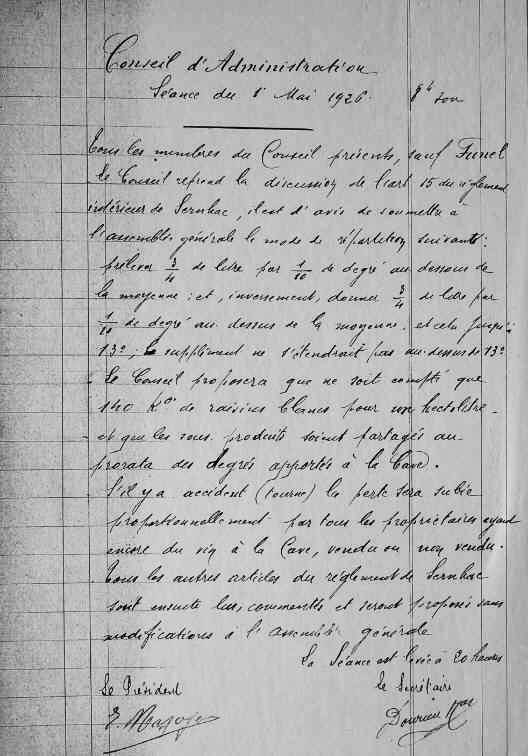 Conseil d'Administration
Séance du 1er Mai 1926. 8h soir
Tous les membres du Conseil présents, sauf Funel
Le Conseil reprend la discussion de l'art 15 du règlement
intérieur de Sernhac, il est d'avis de soumettre à
l'assemblée générale le mode de répartition suivants:
prélever 3/4 de litre par 1/10 de degré au dessous de
la moyenne; et, inversement, donner 3/4 de litre par
1/10 de degré au dessus de la moyenne. et cela jusqu'à
13°; le supplément ne s'étendrait pas au-dessus de 13°
Le Conseil proposera que ne soit compté que
140 Ko de raisins blancs pour un hectolitre -
et que les sous. produits soient partagés au
prorata des degrés apportés à la Cave.
S'il y a accident (tourne) la perte sera subie
proportionnellement par tous les propriétaires ayant
encore du vin à la Cave, vendu ou non vendu.
Tous les autres articles du réglement de Sernhac
sont ensuite lus, commentés et seront proposés sans
modifications à l'assemblée générale
La Séance est levée à 20 heures
Le Président
le Secrétaire